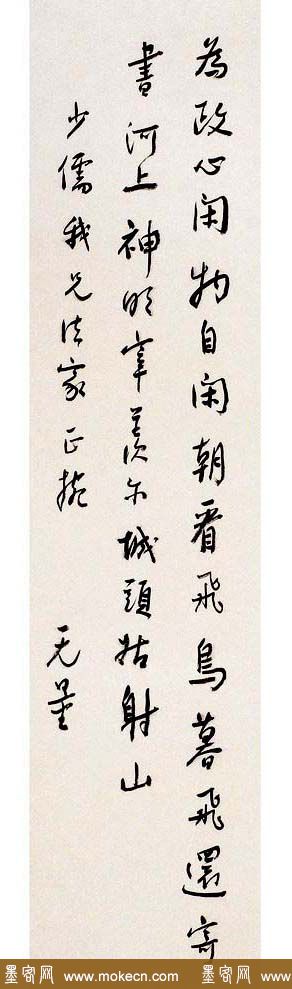 為政心閑物自閑朝看飛鳥暮飛還寄
書河上神明宰羨尔城頭姑射山
少儒我兄法家正捥
无量
墨客网 www.mokecn.com 墨客网 www.mokecn.com